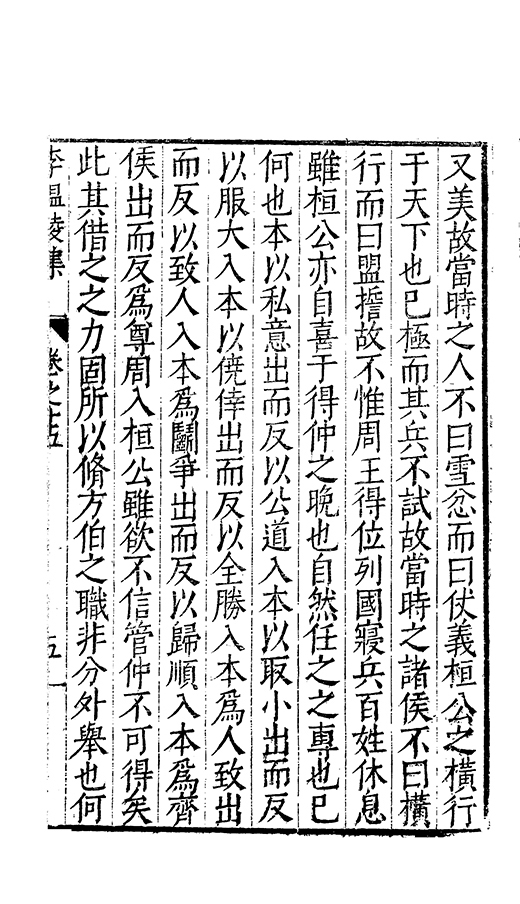 又美故當時之人不曰雪忿而曰仗義桓公之橫行
于天下也已極而其兵不試故當時之諸侯不曰橫
行而曰盟誓故不惟周王得位列國寢兵百姓休息
雖桓公亦自喜于得仲之晚也自然任之之專也已
何也本以私意出而反以公道入本以取小出而反
以服大入本以僥倖出而反以全勝入本爲人致出
而反以致人入本爲鬭爭出而反以歸順入本爲齊
侯出而反爲尊周入桓公雖欲不信管仲不可得矣
此其借之之力固所以脩方伯之職非分外舉也何
李溫陵集 卷之十五 五